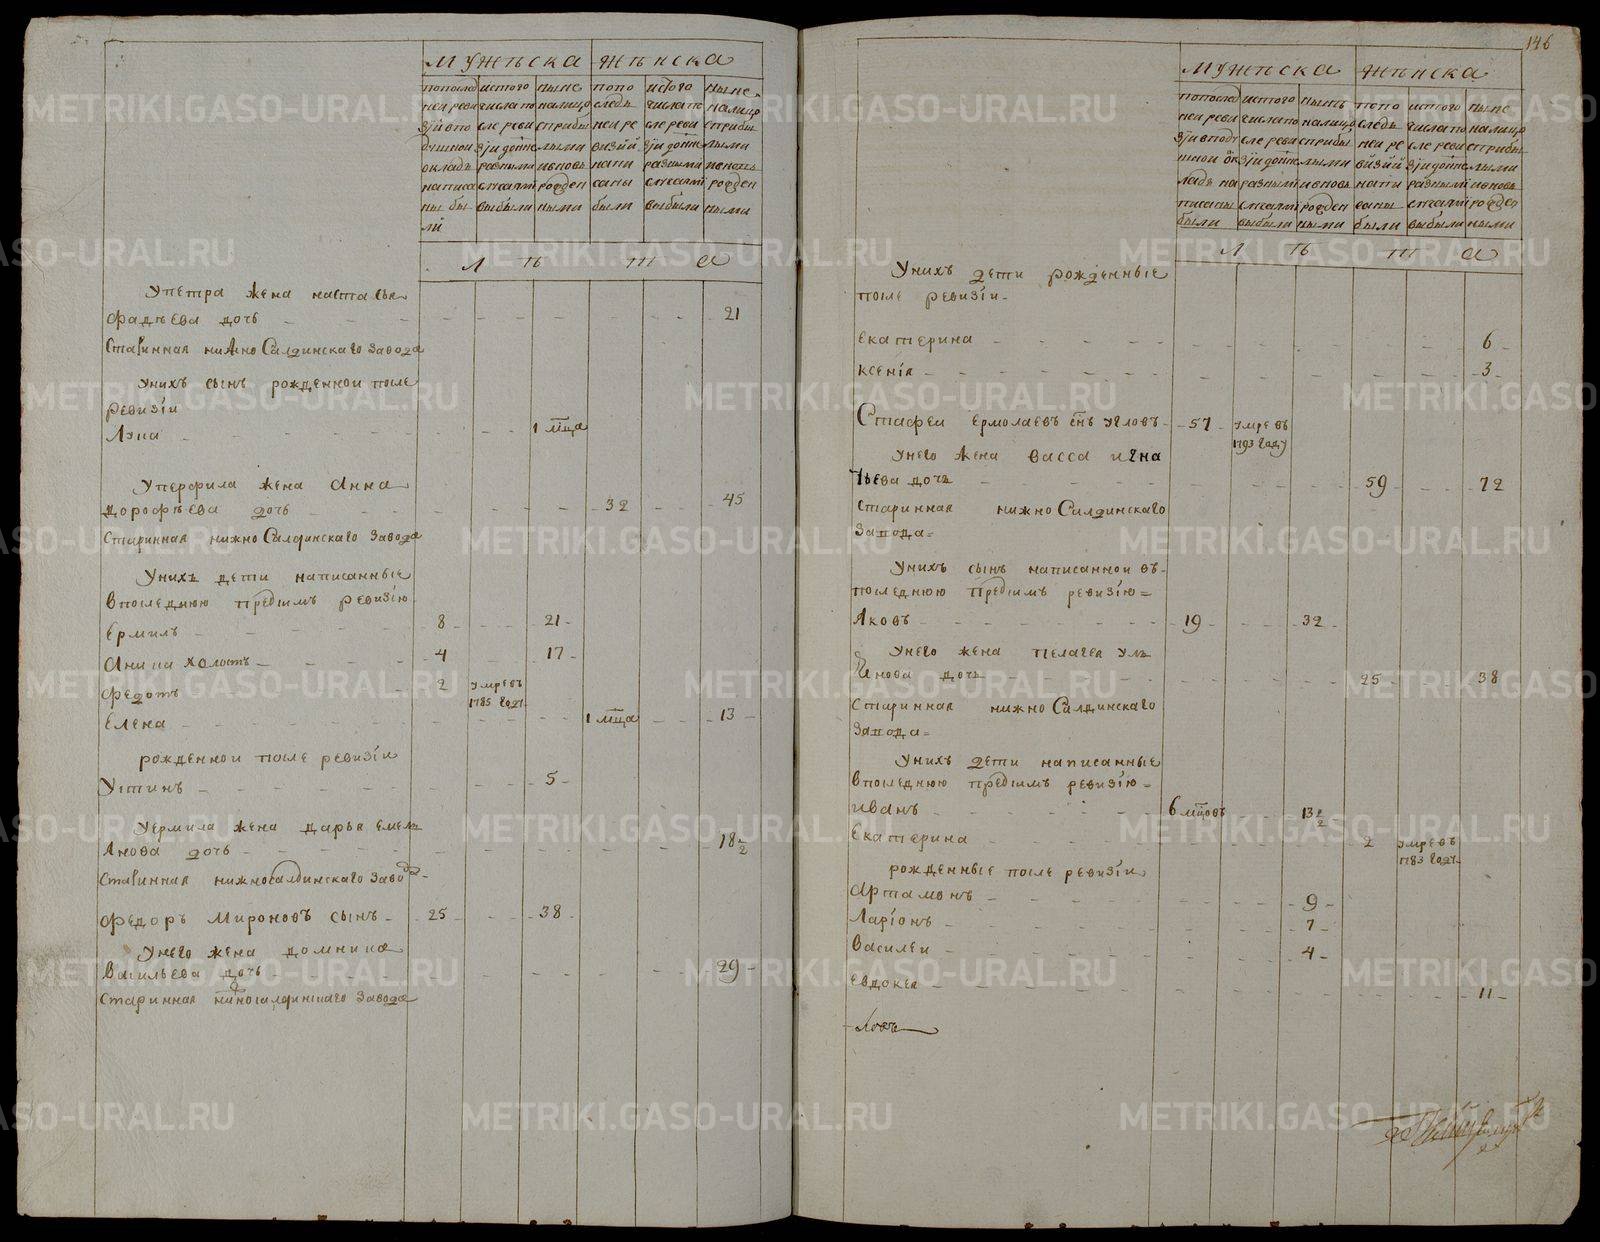 мужеска женска
попослед ней ревизїи вподушной окладъ написаны были
истого числа после ревизїи доїне разными случаями выбыли
ныне налицо сприбылыми ивновь рожденными
попоследней ревизїи написаны были
истого числа после ревизїи доїне разными случаями выбыли
ныне налицо сприбылыми ивновь рожденными
лѣта
Упетра жена настасья
Фадѣева дочь 21
Старинная нижно Салдинскаго завода
Унихъ сынъ рожденнои после
ревизїи
Лупа 1 мца
Уперфила жена Анна
дорофѣева дочь 32 45
Старинная нижно Салдинскаго завода
Унихъ дети написанные
впоследнюю предъимъ ревизїю
Ермилъ 8 21
Аника холостъ 4 17
Федотъ 2 умревъ 1785 году
Елена 1 мца 13
рожденнои после ревизїи
Устинъ 5
Уермила жена дарья емель
янова дочь 18 1/2
Старинная нижносалдинскаго завода
Федоръ Мироновъ сынъ 25 38
Унего жена домника
Васильева дочь 29
Старинная нижносалдинскаго завода
146
мужеска женска
попоследней ревизїи вподушной окладъ написаны были
истого числа после ревизїи доїне разными случаями выбыли
нынѣ налицо сприбылыми ивновь рожденными
попоследней ревизїй написаны были
истого числа после ревизїи доїне разными случаями выбыли
ныне налицо сприбылыми ивновь рожденными
лѣта
Унихъ дети рожденные
после ревизїи
екатерина 6
ксенїя 3
Стафеи ермолаевъ снъ угловъ 57 умревъ 1793 году
Унего жена васса игна
тьева дочь 59 72
Старинная нижно Салдинскаго
завода
Унихъ сынъ написаннои въ
последнюю предъимъ ревизїю
Яковъ 19 32
Унего жена пелагея уль
янова дочь 25 38
Старинная нижно Салдинскаго
завода
Унихъ дети написанные
впоследнюю предъимъ ревизїю
иванъ 6 мцовъ 13 1/2
Екатерина 2 умревъ 1783 году
рожденные после ревизїи
Артамонъ 9
Ларїонъ 7
Василеи 4
евдокея 11